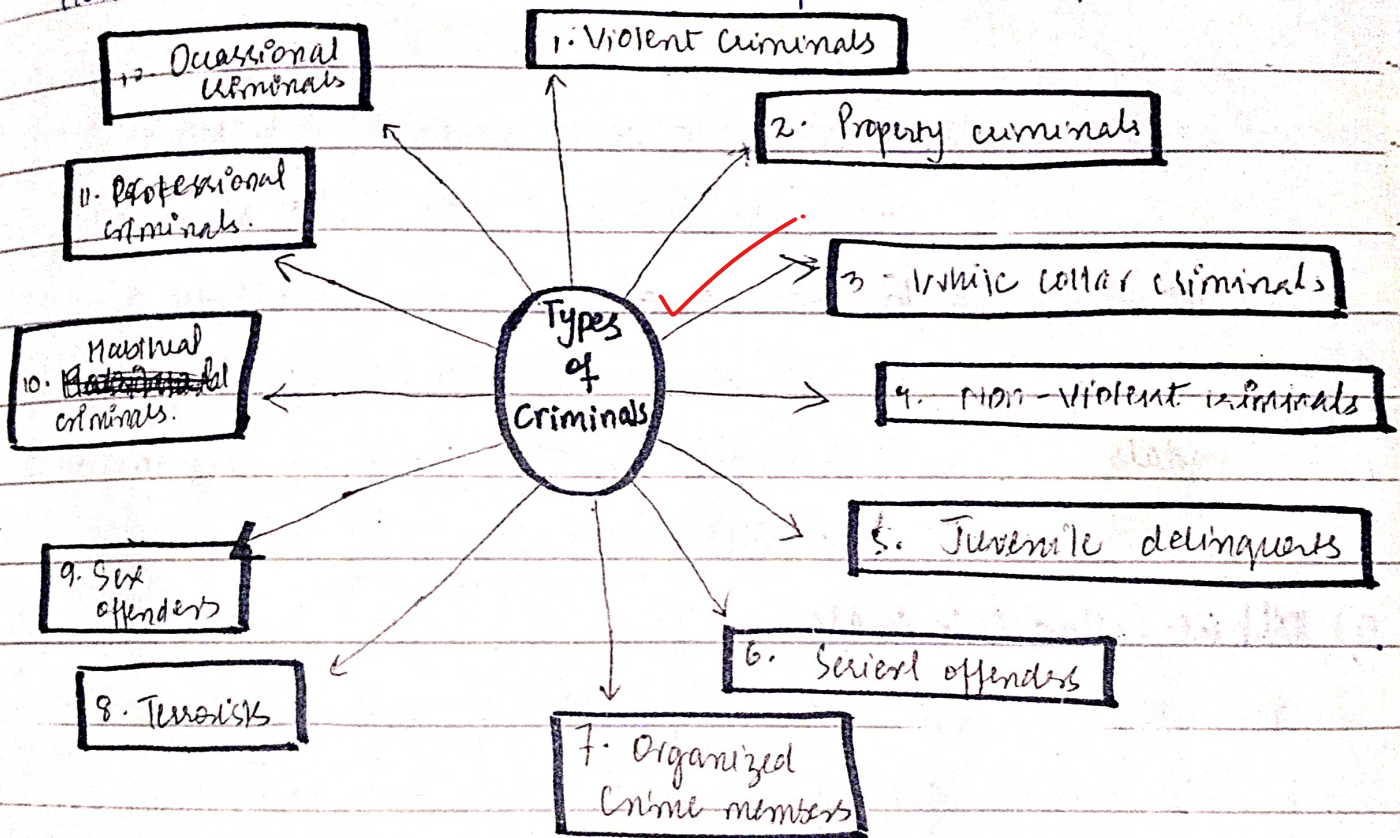 Types
of
Criminals
1. Violent Criminals
2. Property criminals
3 - White collar criminals
4. Non-violent criminals
5. Juvenile delinquents
6. Seriel offenders
7. Organized
Crime members
8. Terrorists
9. Sex
offenders
Habitual
10.
criminals.
11. Professional
criminals.
12. Occassional
criminals